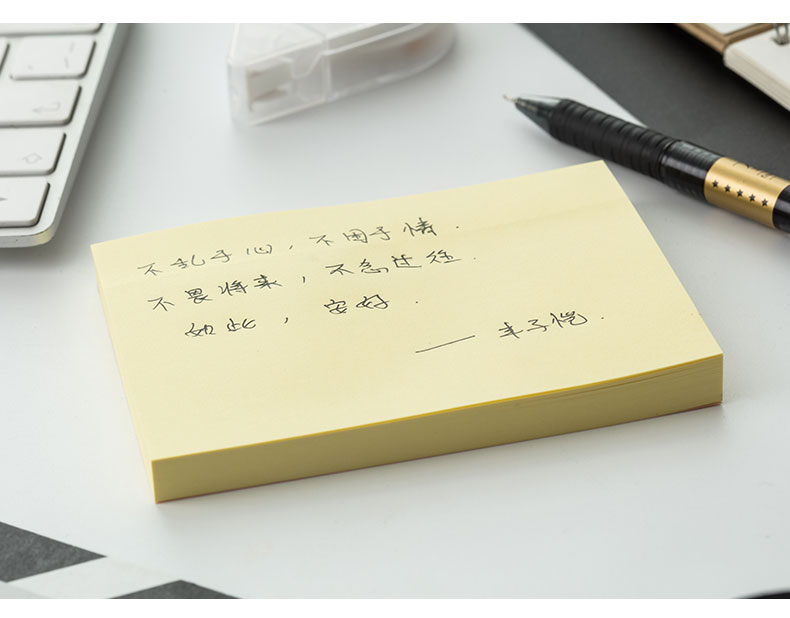 不乱于心，不困于情.
不畏将来，不念过往.
如此，安好.
——丰子恺.